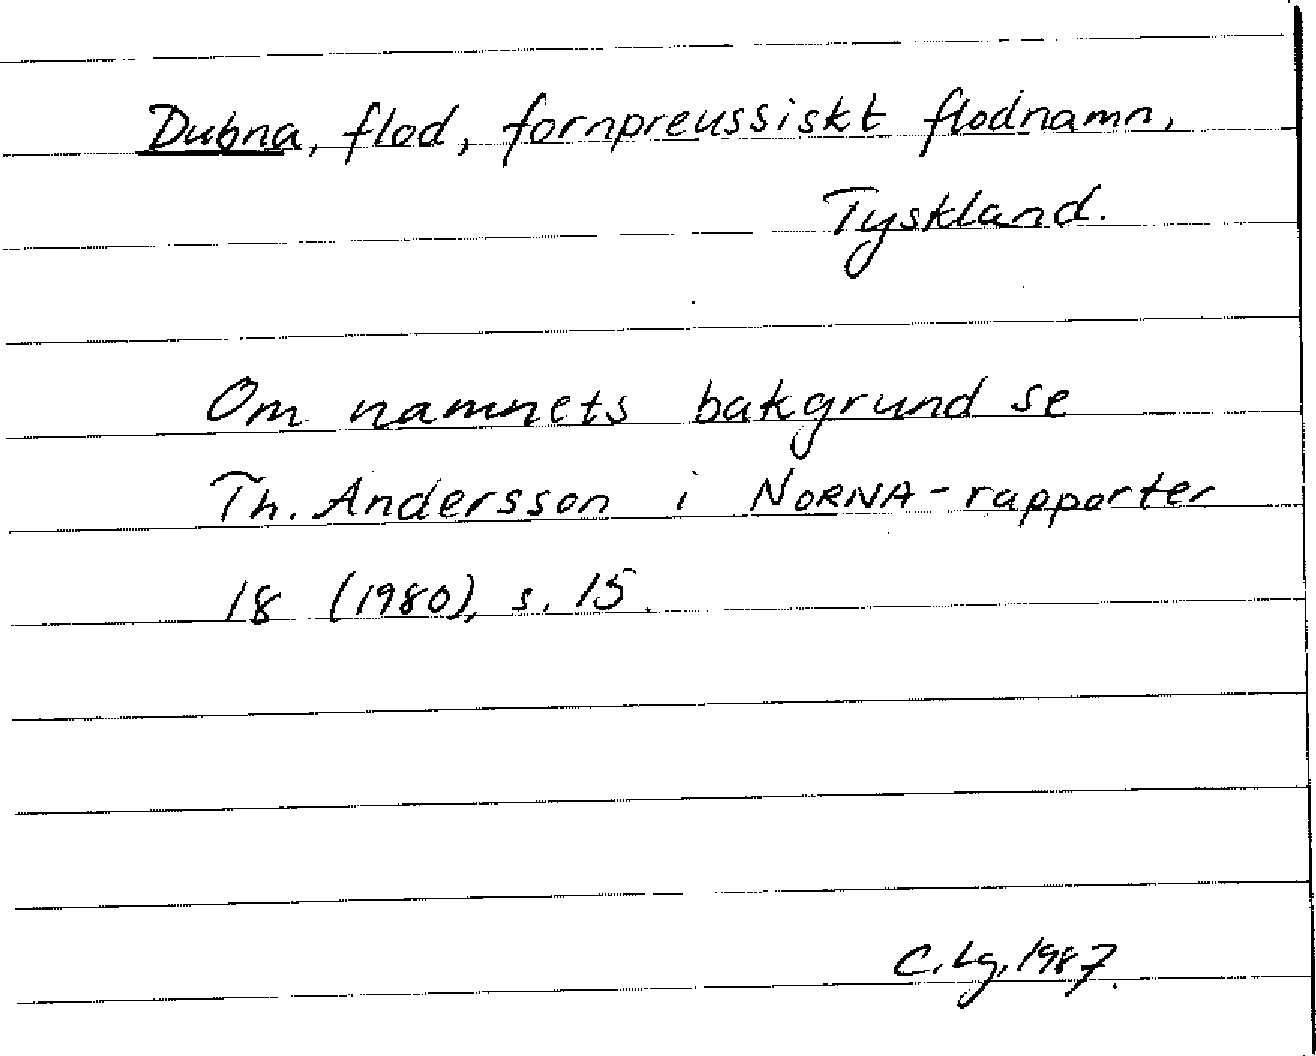 Dubna, flod, fornpreussiskt flodnamn,
Tyskland.
Om namnets bakgrund se
Th. Andersson i NORNA-rapporter
18 (1980), s. 15.
C. Lg. 1987.